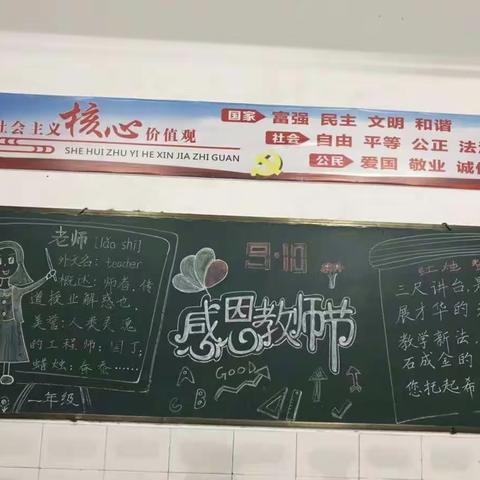 社会主义核心价值观
SHE HUI ZHU YI HE XIN JIA ZHI GUAN
国家 富强 民主 文明 和谐
社会 自由 平等 公正 法
公民 爱国 敬业 诚
老师 [lǎo shī]
外文名: teacher
概述: 师者, 传
道授业解惑也.
美誉: 人类灵魂
的工程师; 园丁;
蜡烛; 春蚕......
一年级
9·10
感恩教师节
GOOD
A
A
G B
红烛
三尺讲台,
展才华的
教学新法,
石成金的
您托起希